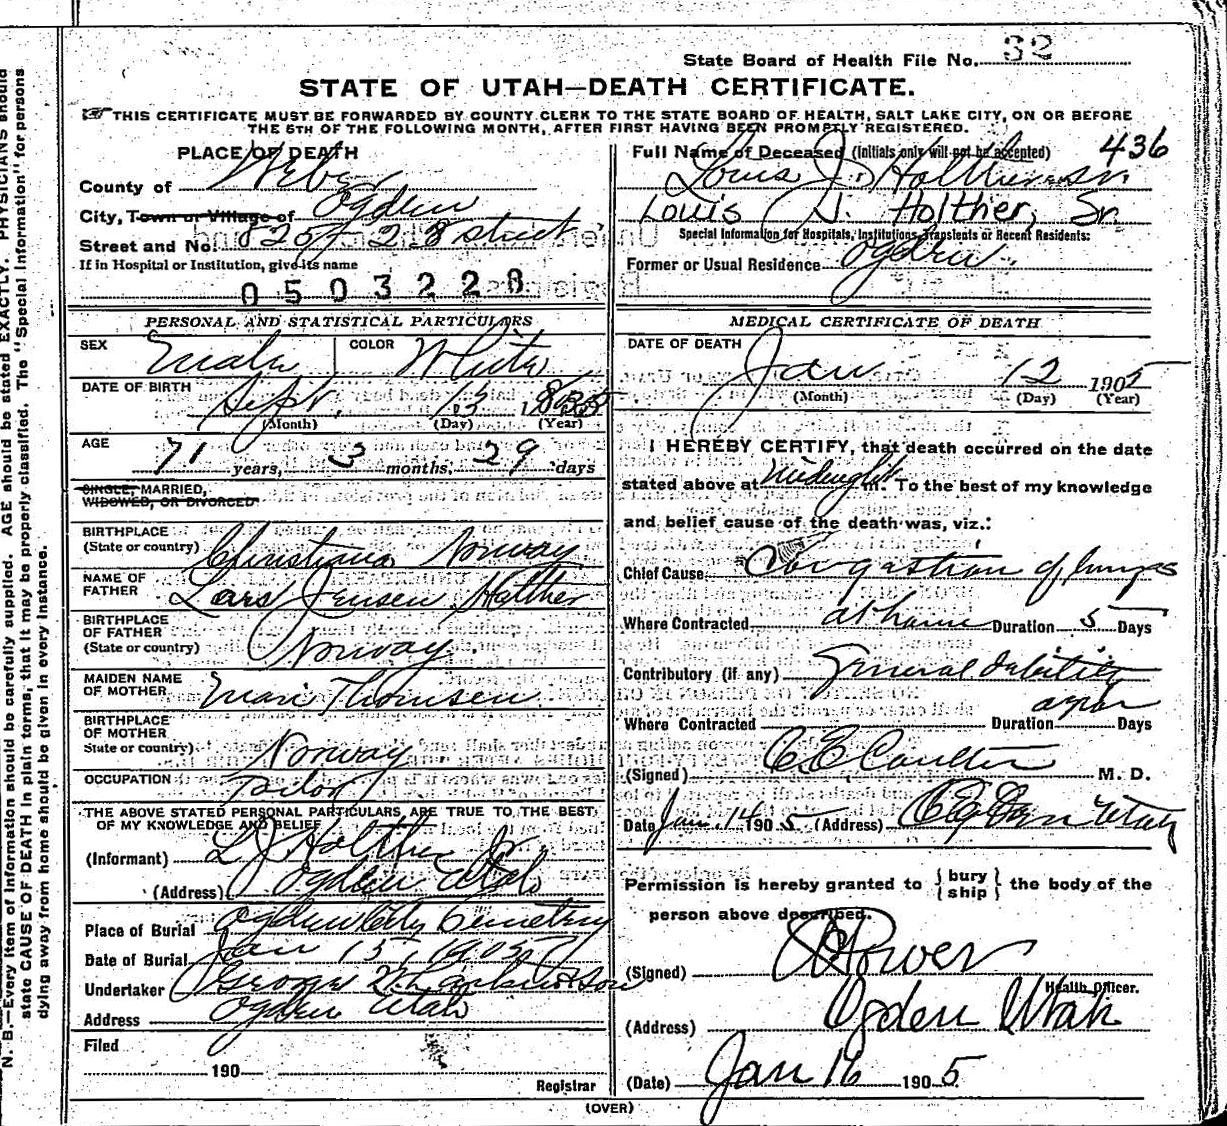 State Board of Health File No. 32
STATE OF UTAH—DEATH CERTIFICATE.
THIS CERTIFICATE MUST BE FORWARDED BY COUNTY CLERK TO THE STATE BOARD OF HEALTH, SALT LAKE CITY, ON OR BEFORE
THE 5TH OF THE FOLLOWING MONTH, AFTER FIRST HAVING BEEN PROMPTLY REGISTERED.
PLACE OF DEATH
County of Weber
City, Town or Village of Ogden
Street and No. 825 23 street
If in Hospital or Institution, give its name
0503228
PERSONAL AND STATISTICAL PARTICULARS
SEX Male COLOR White
DATE OF BIRTH Sept. 13,
(Month) (Day) (Year)
AGE 71 years, 3 months, 29 days
SINGLE, MARRIED,
WIDOWED, OR DIVORCED
BIRTHPLACE
(State or country) Christiana Norway
NAME OF
FATHER Lars Jensen Holther
BIRTHPLACE
OF FATHER
(State or country) Norway
MAIDEN NAME
OF MOTHER Mari Thomsen
BIRTHPLACE
OF MOTHER
State or country) Norway
OCCUPATION Tailor
THE ABOVE STATED PERSONAL PARTICULARS ARE TRUE TO THE BEST
OF MY KNOWLEDGE AND BELIEF
(Informant) L J Holther Jr
(Address) Ogden Utah
Place of Burial Ogden City Cemetery
Date of Burial Jan 15, 1905
Undertaker George W. Larkin & Son
Address Ogden Utah
Filed
190
Registrar
Full Name of Deceased (Initials only will not be accepted) 436
Louis J.
Louis J. Holther, Sr.
Special Information for Hospitals, Institutions, Transients or Recent Residents:
Former or Usual Residence Ogden.
MEDICAL CERTIFICATE OF DEATH
DATE OF DEATH
Jan 12 1905
(Month) (Day) (Year)
I HEREBY CERTIFY, that death occurred on the date
stated above at Midnight m. To the best of my knowledge
and belief cause of the death was, viz.:
Chief Cause Congestion of lungs
Where Contracted at home Duration 5 Days
Contributory (if any) General debility
Where Contracted Duration Days
(Signed) C E Coulter M. D.
Date Jan. 14 1905 (Address) Ogden Utah
Permission is hereby granted to { bury ship } the body of the
person above described.
(Signed) Power
Health Officer.
(Address) Ogden Utah
(Date) Jan 16 1905
(OVER)
N. B.—Every item of information should be carefully supplied. AGE should be stated EXACTLY. PHYSICIANS should
state CAUSE OF DEATH in plain terms, that it may be properly classified. The "Special Information" for persons
dying away from home should be given in every instance.